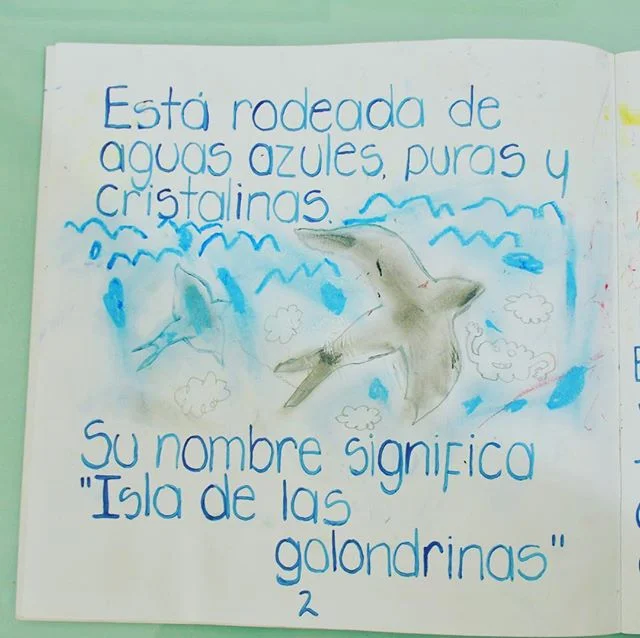 Está rodeada de
aguas azules, puras y
cristalinas.
Su nombre significa
"Isla de las
golondrinas"
2